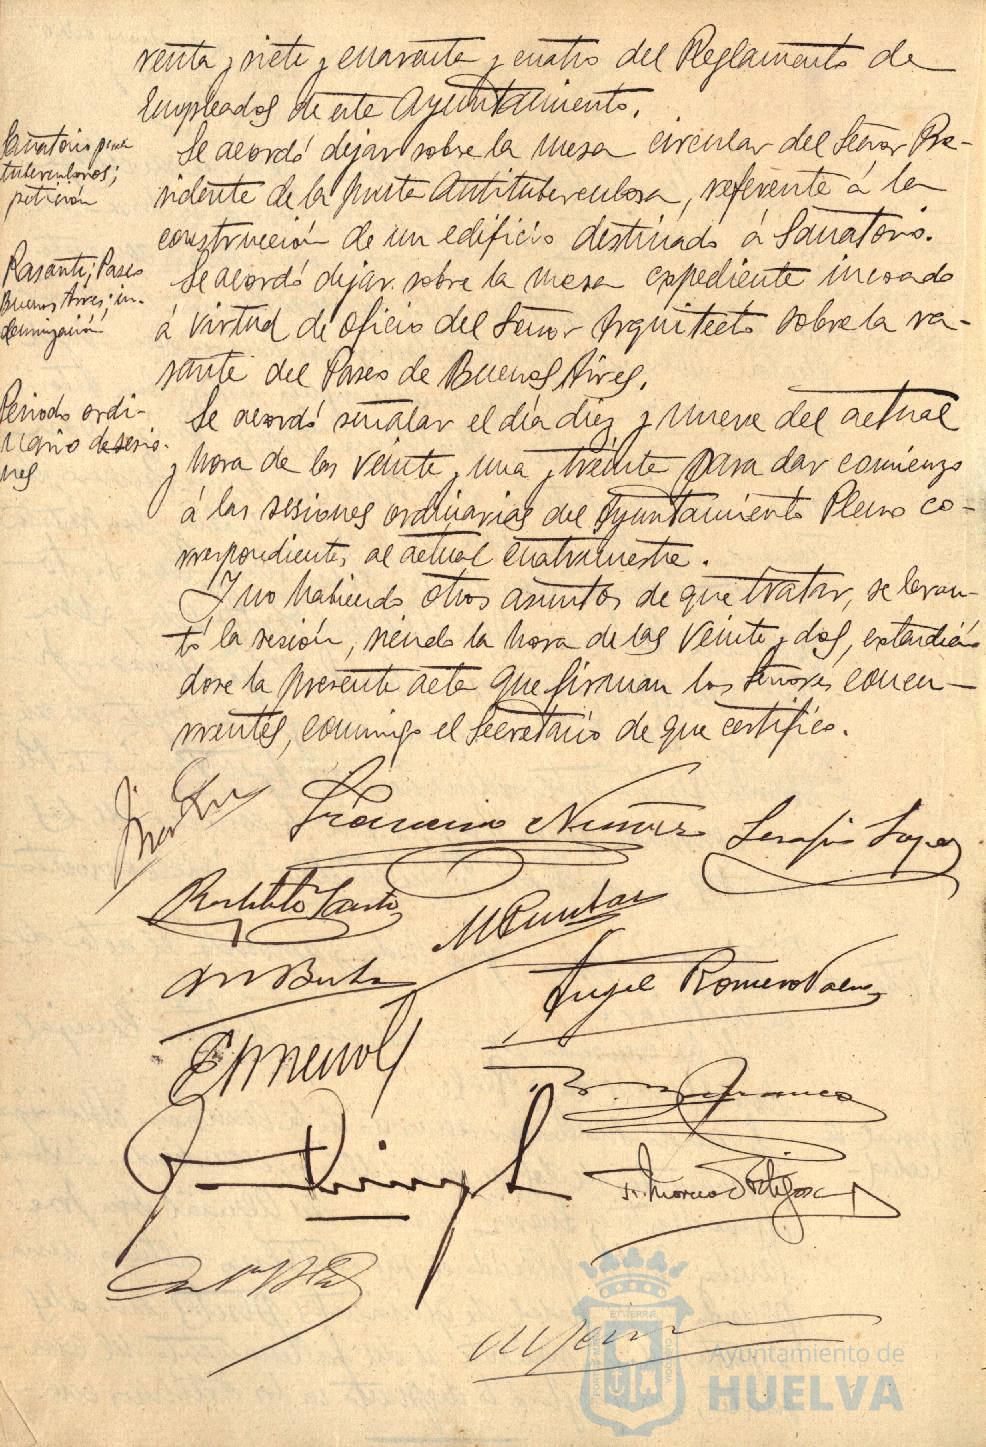 renta y siete y cuarenta y cuatro del Reglamento de
Empleados de este Ayuntamiento.
Sanatorio para
tuberculosos;
petición
Se acordó dejar sobre la mesa circular del Señor Pre-
sidente de la Junta Antituberculosa, referente á la
construcción de un edificio destinado á Sanatorio.
Rasante; Paseo
Buenos Aires; in-
demnización
Se acordó dejar sobre la mesa expediente incoado
á virtud de oficio del Señor Arquitecto sobre la ra-
sante del Paseo de Buenos Aires.
Periodo ordi-
nario de sesio-
nes
Se acordó señalar el día diez y nueve del actual
y hora de las veinte y una y treinta para dar comienzo
á las sesiones ordinarias del Ayuntamiento Pleno co-
rrespondientes al actual cuatrimestre.
Y no habiendo otros asuntos de que tratar, se levan-
tó la sesión, siendo la hora de las veinte y dos, extendién
dose la presente acta que firman los Señores concu-
rrentes, conmigo el Secretario de que certifico.
Francisco Serafín López
Angel Romero
Ayuntamiento de
HUELVA